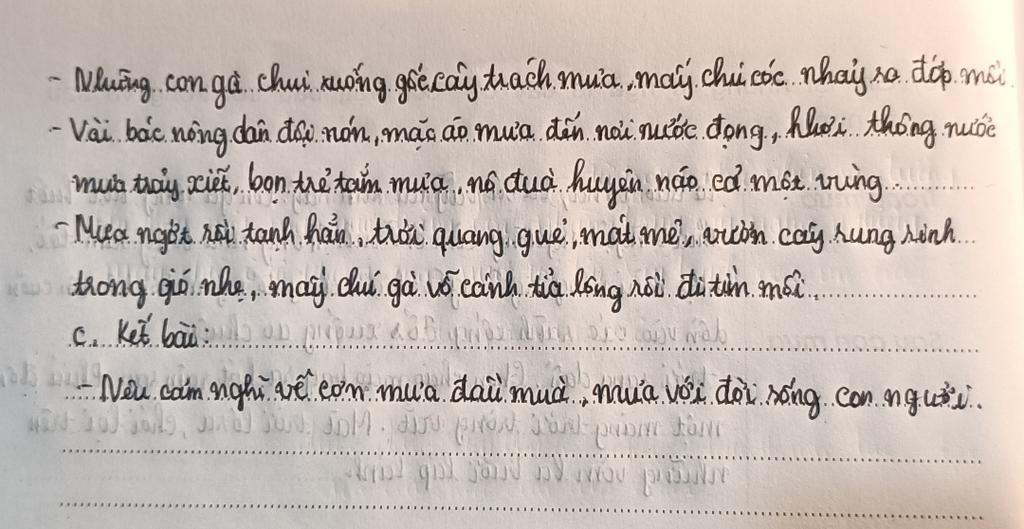 - Những con gà chui xuống gốc cây trách mưa, mấy chú cóc nhảy ra đớp mồi
- Vài bác nông dân đội nón, mặc áo mưa đến nơi nước đọng, khơi thông nước
mưa trảy xiết, bọn trẻ tắm mưa, nô đuà huyên náo cả một vùng
- Mưa ngớt rồi tạnh hẳn, trời quang quẻ, mát mẻ, vườn cây rung rinh
trong gió nhẹ, mấy chú gà vỗ cánh tỉa lông rồi đi tìm mồi.
c. Kết bài:
- Nêu cảm nghĩ về cơn mưa đầu muà, mưa với đời sống con người.